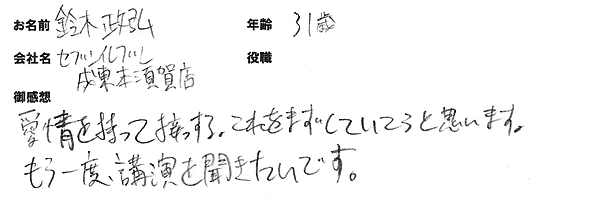 お名前 鈴木政弘 年齢 31歳
会社名 セブンイレブン 役職
成東本須賀店
御感想
愛情を持って接っする。これをまずしていこうと思います。
もう一度、講演を聞きたいです。